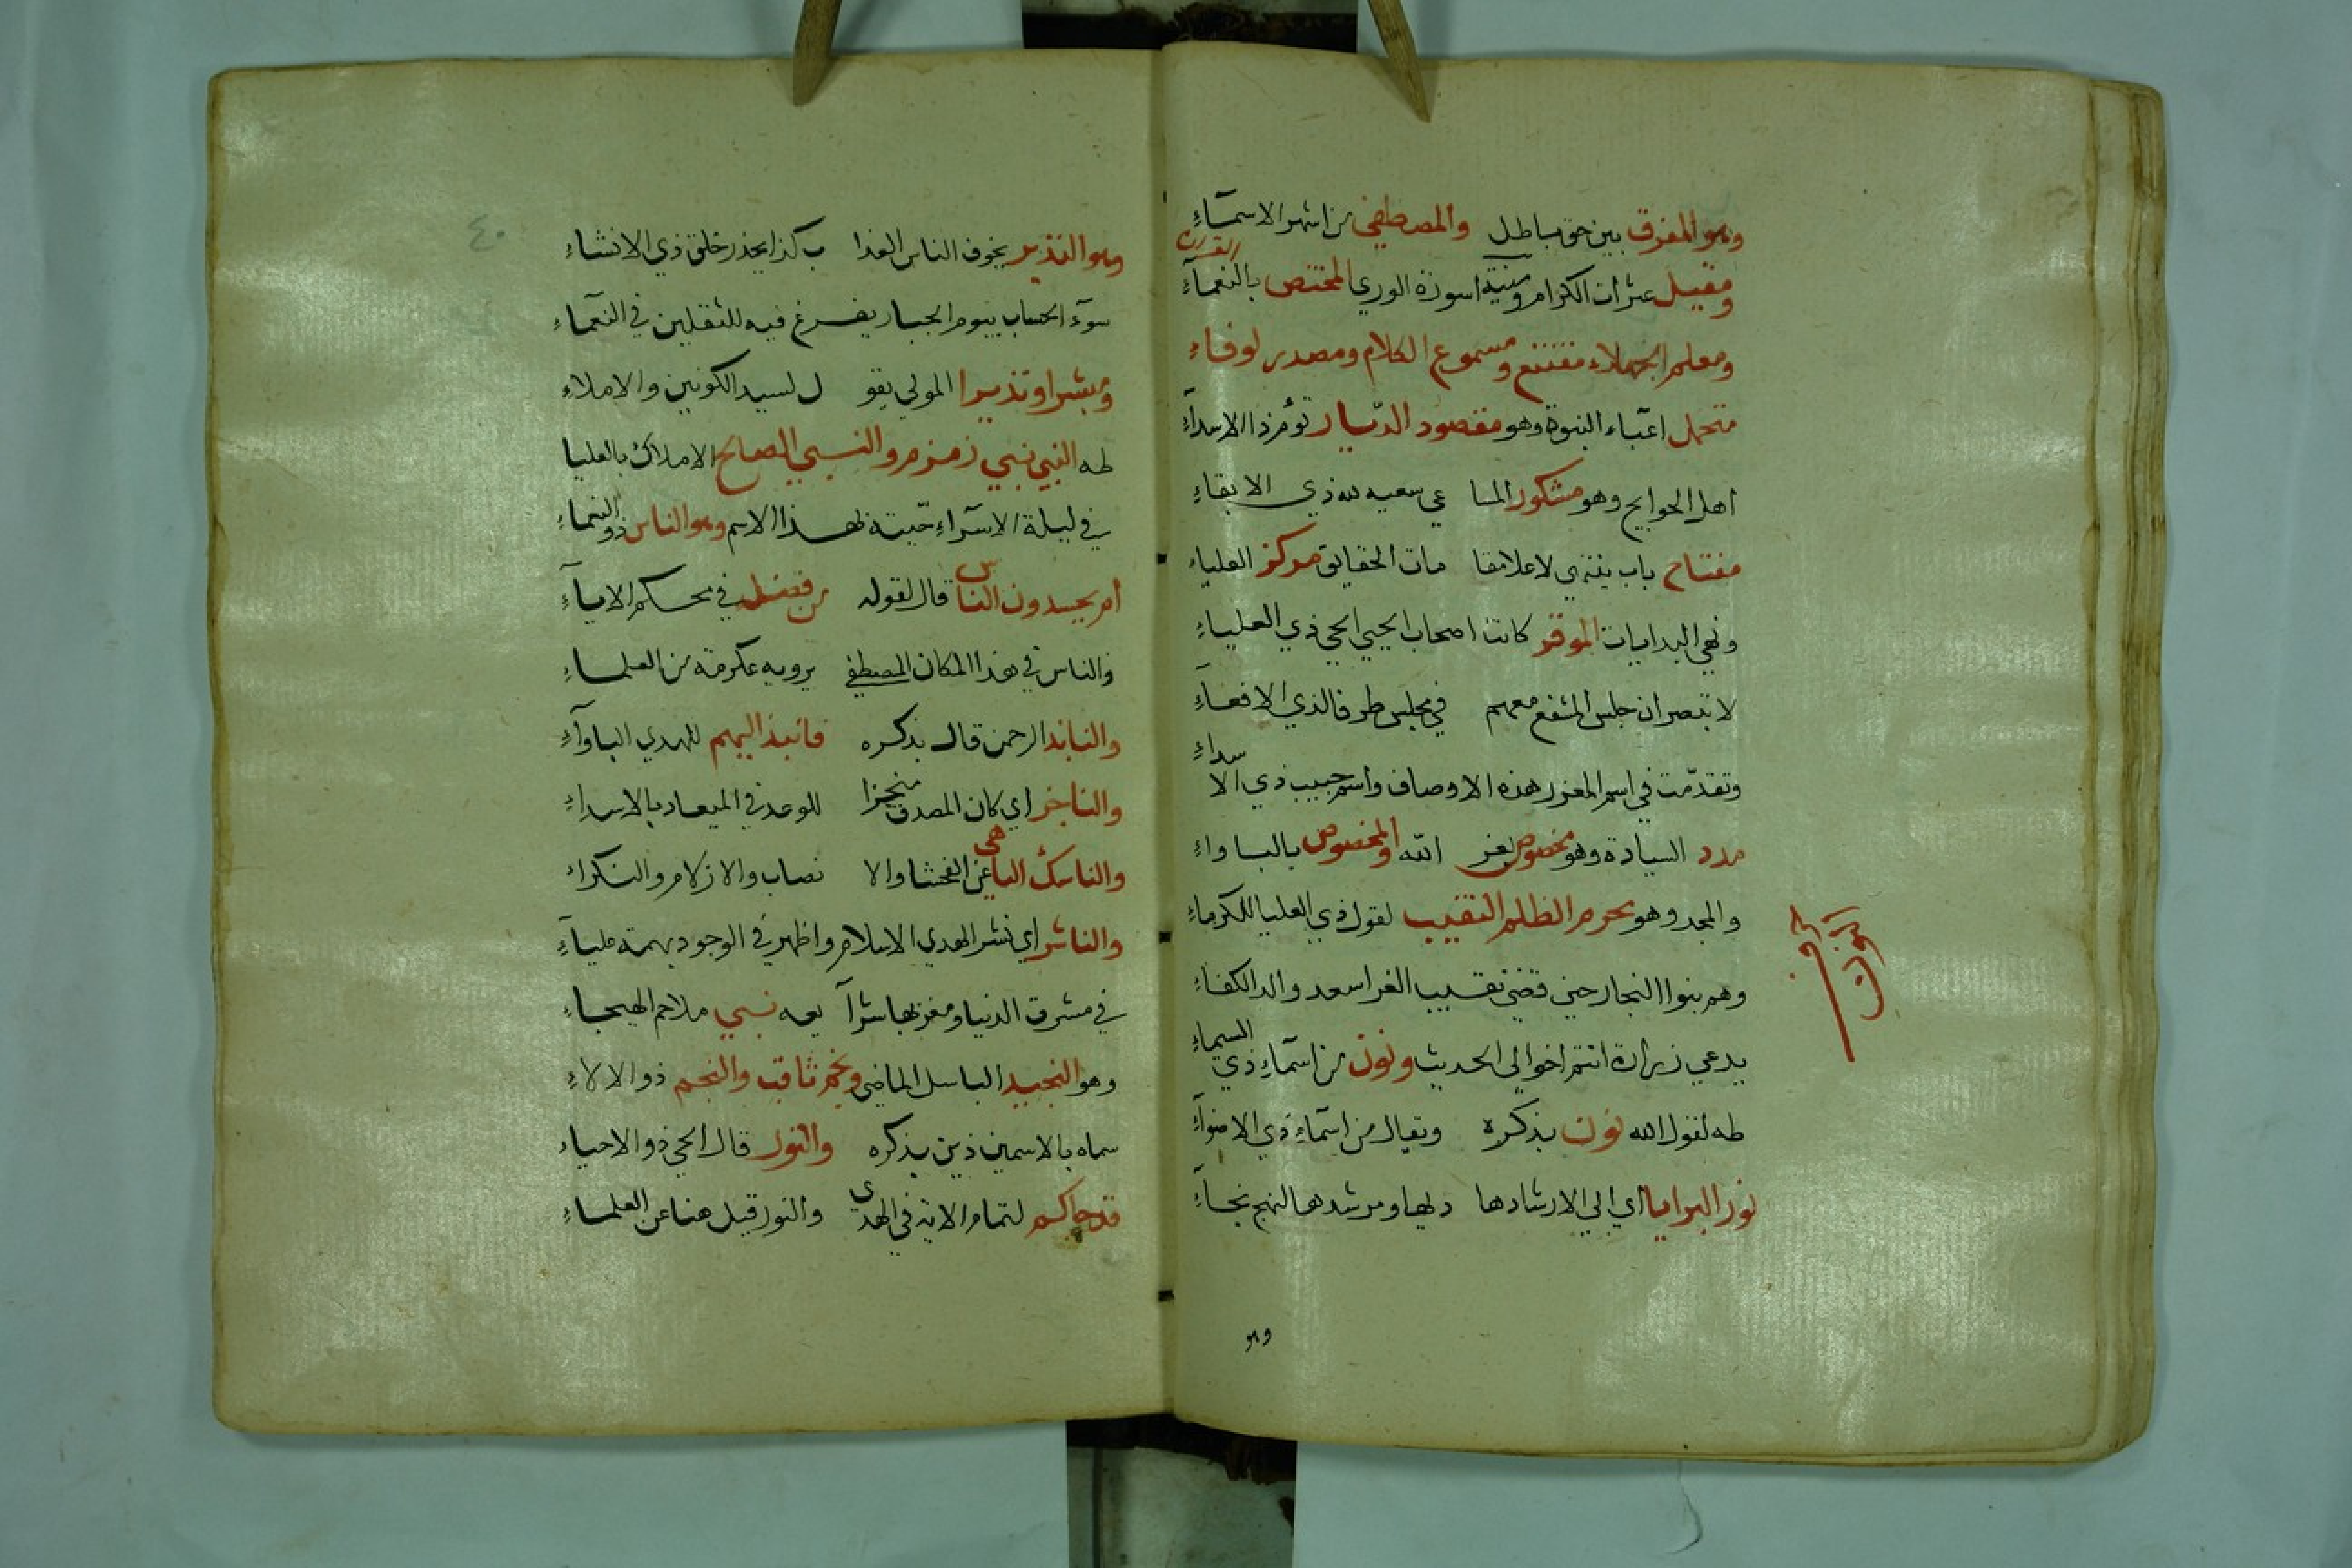 وهو المفرق بين حق باطل والمصطفى من اشهر الاسمآءِ
ومقيل عثرات الكرام ومنية اسوذة الوري المختص بالنعمآءِ
ومعلم الجهلاء مقتنع ومسموع الكلام ومصدر لوفاءِ
متحمل اعبآء النبوة وهو مقصود الديار تؤم ذا الاسدآءِ
اهل الحوايج وهو مشكور المسا عي سعيه لله ذي الابقاءِ
مفتاح باب ينتهي لاعلا مقا مات الحقايق مركز العلياء
ونهي البدايات الموقر كانت اصحاب الحيي الحي ذي العلياءِ
لا تبصر ان جلس المشفع معهم في مجلس طرفا لذي الافعآءِ
وتقدّمت في اسم المعزر هذه الاوصاف واسم حبيب ذي الا سداءِ
مدد السيادة وهو مخصوص بعز الله والمخصوص بالبا واءِ
والمجد وهو محرم الظلم النقيب لقول ذي العليا للكرماءِ
حرف
النون
وهم بنوا النجار حين قضى نقيب الغر اسعد والد الكفاءِ
يدعي زرارة انتم اخوالي الحديث ونون من اسمآءِ ذي السماءِ
طه لقول الله نون بذكره ويقال من اسمآءِ ذي الاضوآءِ
نور البرايا اي الي الارشادها ديها ومرشدها لنهج نجآءِ
وهو
٤٠
وهو النذير يخوف الناس العذا ب كذا يحذر خلق ذي الانشاءِ
سوء الحساب بيوم الجبار يفرغ فيه للثقلين في النعمآءِ
ومبشرا ونذيرا المولي يقو ل لسيد الكونين والاملاءِ
طه النبي نبي زمزم والنسبي الصالح الاملاك بالعليا
في ليلة الاسرآءِ حيته بهذا الاسم وهو الناس ذو النعماءِ
ام يحسدون الناس قال لقوله من فضله في محكم الايآءِ
والناس في هذا المكان المصطفى يرويه عكرمة من العلماءِ
والنابذ الرحمن قال بذكره فانبذ اليهم للهدي الباوآءِ
والناجز اي كان المصدق منجزا للوعد في الميعاد بالاسداءِ
والناسك الناهي عن الفحشا والا نصاب والازلام والنكراء
والناشر اي نشر الهدي الاسلام واظهر في الوجود بهمة عليآءِ
في مشرق الدنيا ومغربها شرآ يعه نبي ملاحم الهيجاءِ
وهو النجيد الباسل الماضي ونجم ثاقب والنجم ذو الالاءِ
سماه بالاسمين ذين بذكره والنور قال الحي ذو الاحياء
قد جاكم لتمام الاية في الهدي والنور قيل هنا عن العلماءِ